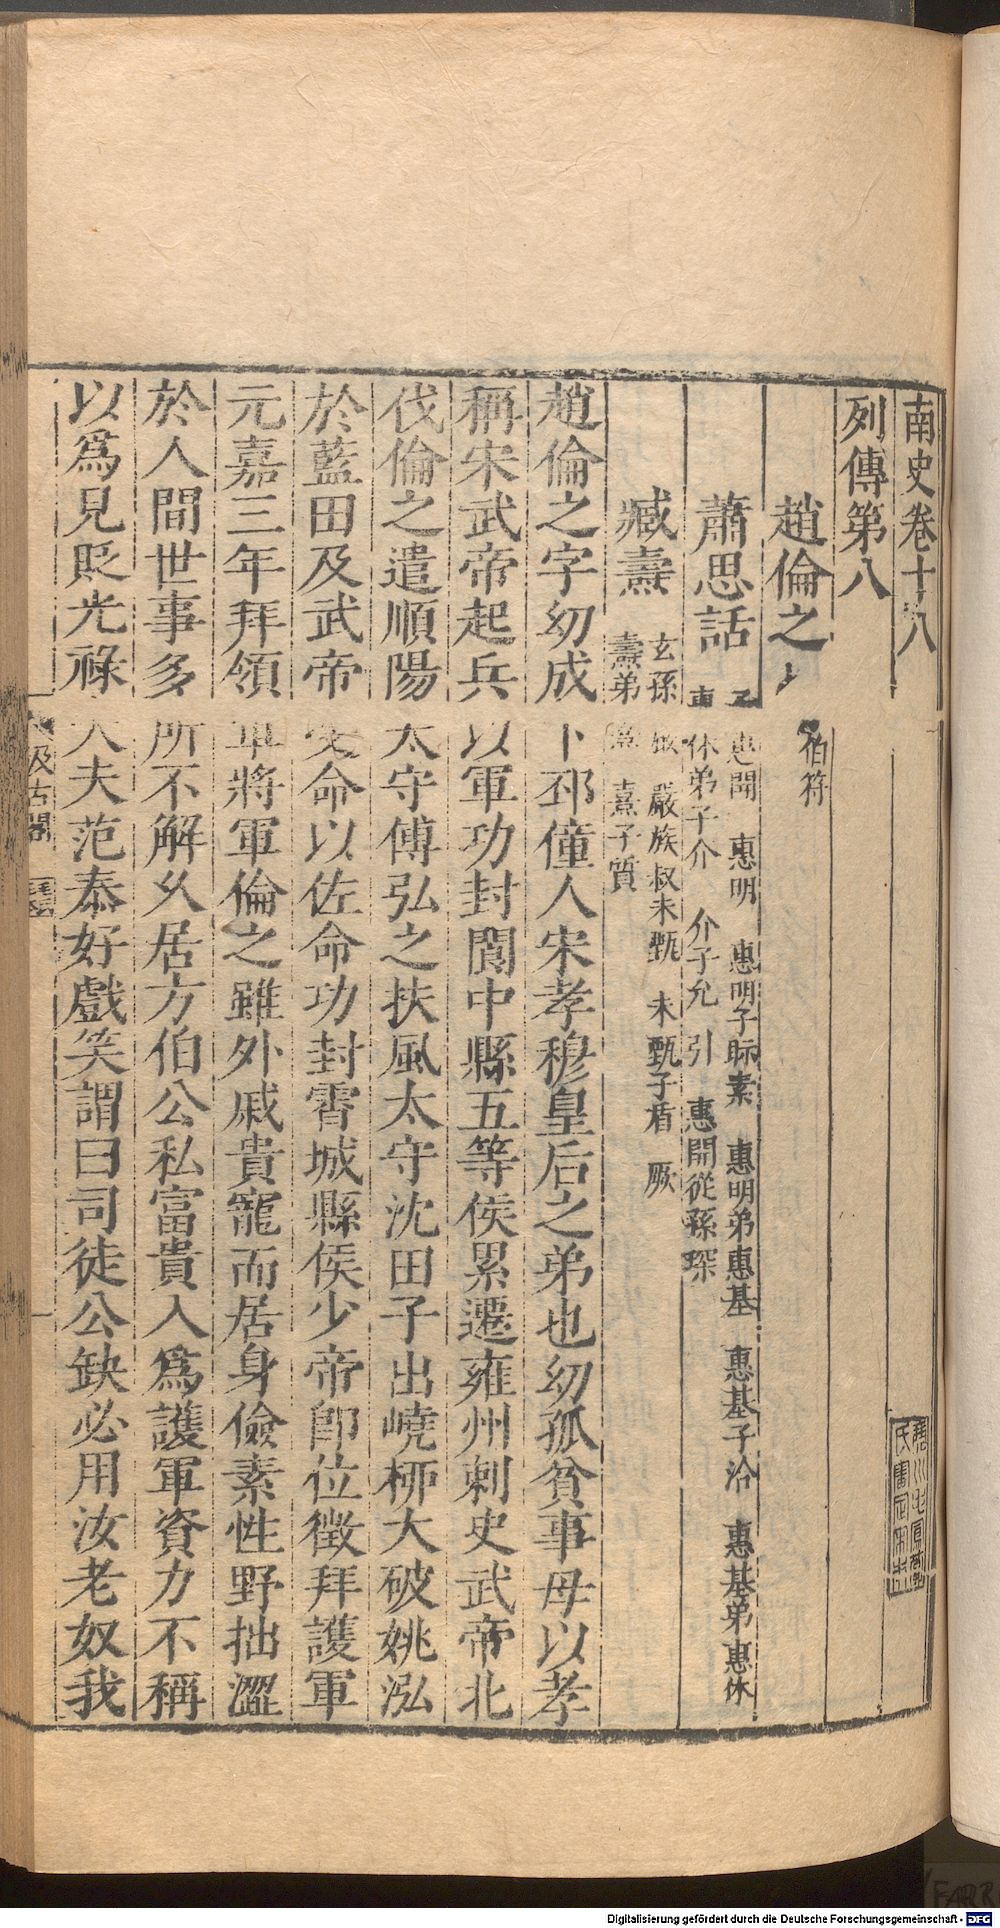 南史卷十八
列傳第八
趙倫之 子伯符
蕭思話 子惠開 惠明 惠明子眎素 惠明弟惠基 惠基子洽 惠基弟惠休
惠休弟子介 介子允 引 惠開從孫琛
臧燾 玄孫嚴 嚴族叔未甄 未甄子盾 厥
燾弟熹 熹子質
趙倫之字幼成下邳僮人宋孝穆皇后之弟也幼孤貧事母以孝
稱宋武帝起兵以軍功封閬中縣五等侯累遷雍州刺史武帝北
伐倫之遣順陽太守傅弘之扶風太守沈田子出嶢柳大破姚泓
於藍田及武帝受命以佐命功封霄城縣侯少帝即位徵拜護軍
元嘉三年拜領軍將軍倫之雖外戚貴寵而居身儉素性野拙澀
於人間世事多所不解久居方伯公私富貴入爲護軍資力不稱
以爲見貶光祿大夫范泰好戲笑謂曰司徒公缺必用汝老奴我
汲古閣
Digitalisierung gefördert durch die Deutsche Forschungsgemeinschaft - DFG